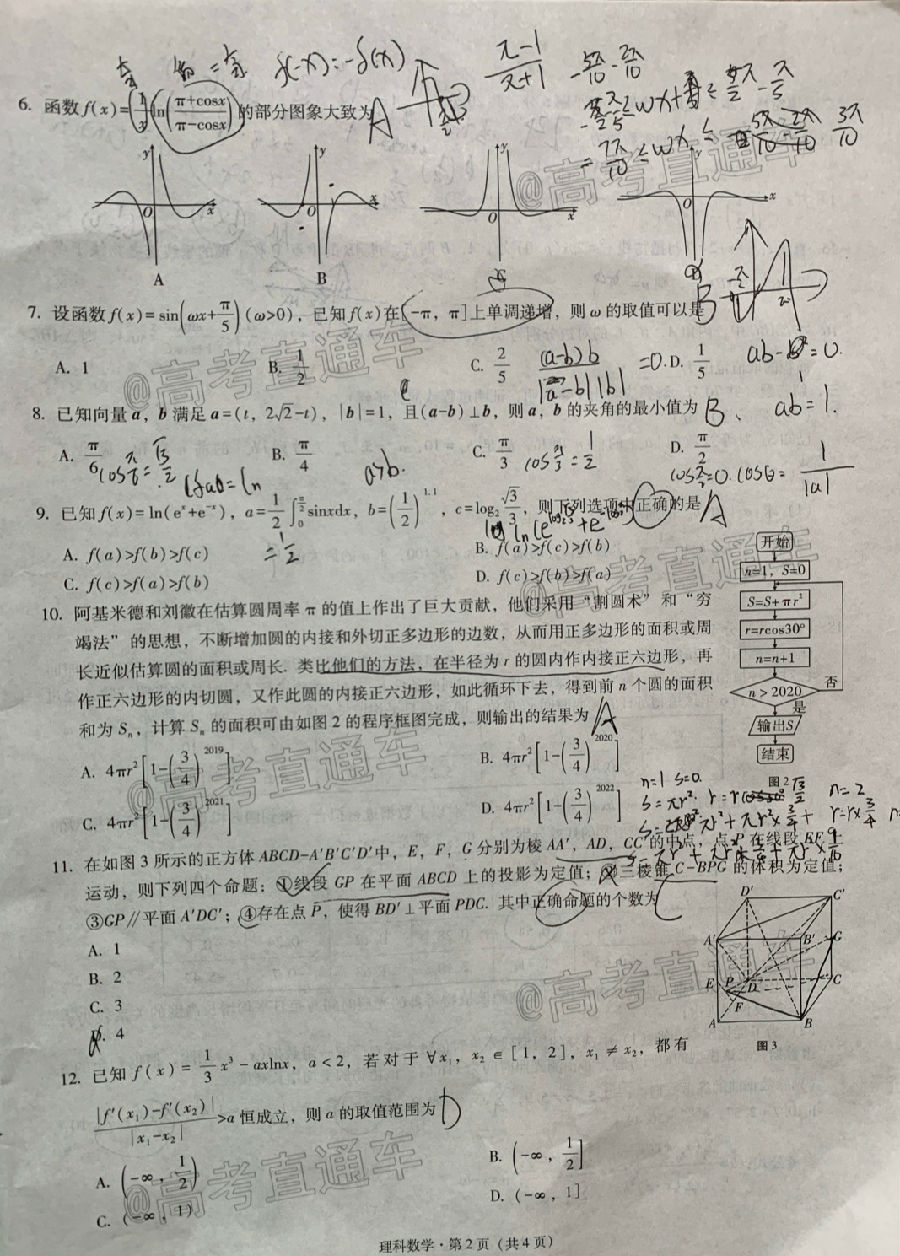 奇 偶=奇 f(-x)=-f(x)
6. 函数f(x)=(1/x)ln((π+cosx)/(π-cosx))的部分图象大致为 A
A B C D
7. 设函数f(x)=sin(ωx+π/5)(ω>0)，已知f(x)在[-π，π]上单调递增，则ω的取值可以是 B
A. 1 B. 1/2 C. 2/5 D. 1/5
8. 已知向量a，b满足a=(t，2√2-t)，|b|=1，且(a-b)⊥b，则a，b的夹角的最小值为 B
A. π/6 B. π/4 C. π/3 D. π/2
9. 已知f(x)=ln(eˣ+e⁻ˣ)，a=1/2∫₀^(π/2)sinxdx，b=(1/2)^1.1，c=log₂(√3/3)，则下列选项中正确的是 A
A. f(a)>f(b)>f(c) B. f(a)>f(c)>f(b)
C. f(c)>f(a)>f(b) D. f(c)>f(b)>f(a)
10. 阿基米德和刘徽在估算圆周率π的值上作出了巨大贡献，他们采用“割圆术”和“穷
竭法”的思想，不断增加圆的内接和外切正多边形的边数，从而用正多边形的面积或周
长近似估算圆的面积或周长. 类比他们的方法，在半径为r的圆内作内接正六边形，再
作正六边形的内切圆，又作此圆的内接正六边形，如此循环下去，得到前n个圆的面积
和为Sₙ，计算Sₙ的面积可由如图2的程序框图完成，则输出的结果为 A
A. 4πr²[1-(3/4)^2019] B. 4πr²[1-(3/4)^2020]
C. 4πr²[1-(3/4)^2021] D. 4πr²[1-(3/4)^2022]
开始
n=1，S=0
S=S+πr²
r=rcos30°
n=n+1
n>2020 否
是
输出S
结束
图2
11. 在如图3所示的正方体ABCD-A'B'C'D'中，E，F，G分别为棱AA'，AD，CC'的中点，点P在线段EF上
运动，则下列四个命题：①线段GP在平面ABCD上的投影为定值；②三棱锥C-BPG的体积为定值；
③GP∥平面A'DC'；④存在点P，使得BD'⊥平面PDC. 其中正确命题的个数为
A. 1
B. 2
C. 3
D. 4
D' C'
A' B' G
E P D C
F
A B
图3
12. 已知f(x)=1/3x³-axlnx，a<2，若对于∀x₁，x₂∈[1，2]，x₁≠x₂，都有
|f'(x₁)-f'(x₂)|/|x₁-x₂|>a恒成立，则a的取值范围为 D
A. (-∞，1/2) B. (-∞，1/2]
C. (-∞，1) D. (-∞，1]
理科数学·第2页（共4页）
@高考直通车
@高考直通车
@高考直通车
@高考直通车
@高考直通车
@高考直通车